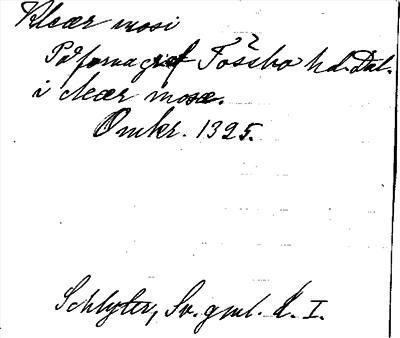 Klear mosi
På fornagraf Fössbo hd. Dal.
i klear mosæ.
Omkr. 1325.
Schlyter, Sv. gml. L. I.